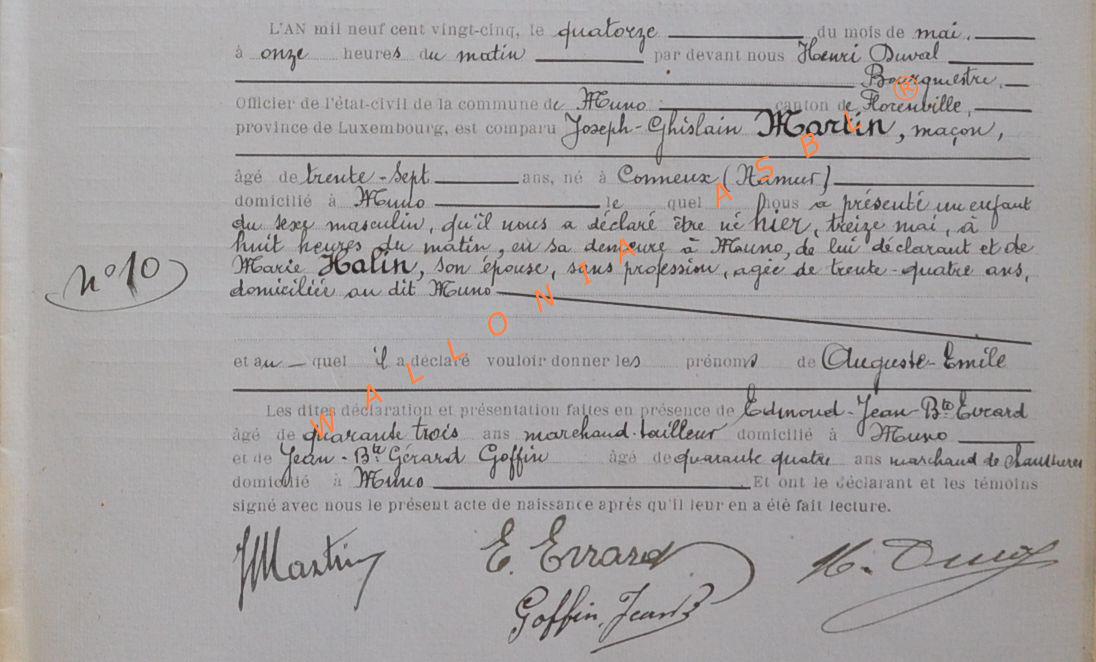 L'AN mil neuf cent vingt-cinq, le quatorze du mois de mai.
à onze heures du matin par devant nous Henri Duval
Bourgmestre,
Officier de l'état-civil de la commune de Muno canton de Florenville,
province de Luxembourg, est comparu Joseph-Ghislain Martin, maçon,
âgé de trente-sept ans, né à Conneux (Namur)
domicilié à Muno le quel nous a présenté un enfant
du sexe masculin, qu'il nous a déclaré être né hier, treize mai, à
huit heures du matin, en sa demeure à Muno, de lui déclarant et de
Marie Halin, son épouse, sans profession, agée de trente-quatre ans,
domiciliée au dit Muno
n° 10
et au quel il a déclaré vouloir donner les prénoms de Auguste-Emile
Les dites déclaration et présentation faites en présence de Edmond-Jean-Bte Evrard
âgé de quarante trois ans marchand-tailleur domicilié à Muno
et de Jean-Bte Gérard Goffin âgé de quarante quatre ans marchand de chaussures
domicilié à Muno Et ont le déclarant et les témoins
signé avec nous le présent acte de naissance après qu'il leur en a été fait lecture.
JMartin E. Evrard H. Duval
Goffin, Jean B
WALLONIA ASBL ®